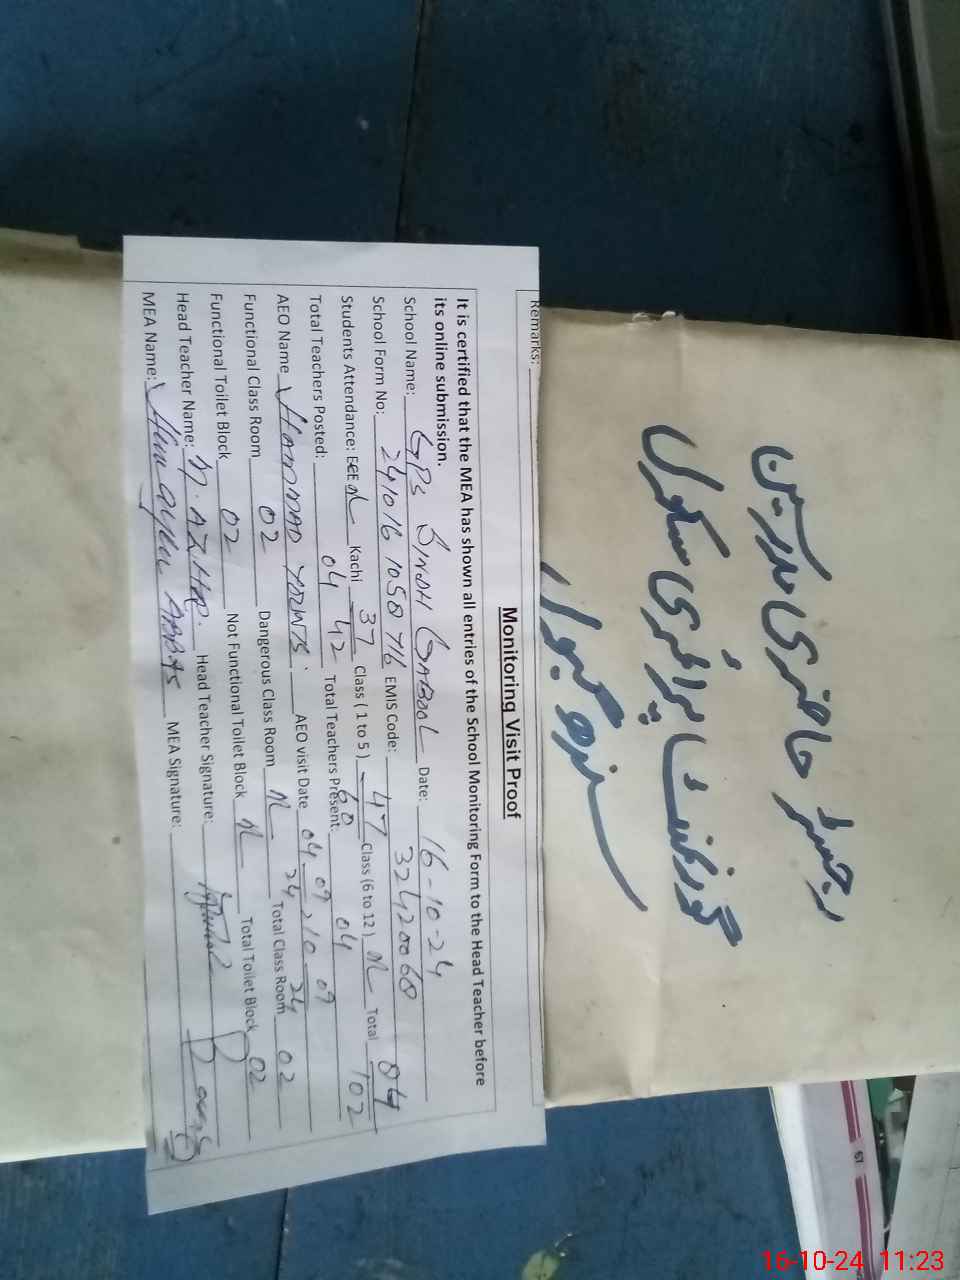 رجسٹر حاضری مدرسین
گورنمنٹ پرائمری سکول
سندھ گبول
Remarks:
Monitoring Visit Proof
It is certified that the MEA has shown all entries of the School Monitoring Form to the Head Teacher before
its online submission.
School Name: GPS SINDH GABOOL Date: 16-10-24
School Form No: 241016 1058 716 EMIS Code: 32420060
Students Attendance: ECE N Kachi 37 Class ( 1 to 5 ) 47 Class (6 to 12 ) N Total 84
42 60 102
Total Teachers Posted: 04 Total Teachers Present: 04
AEO Name HAMMAD AEO visit Date 04 09 24 10 09 24
Functional Class Room 02 Dangerous Class Room N Total Class Room 02
Functional Toilet Block 02 Not Functional Toilet Block N Total Toilet Block 02
Head Teacher Name: M. AZHAR. Head Teacher Signature:
MEA Name: Humayun ABBAS MEA Signature:
67
16-10-24 11:23